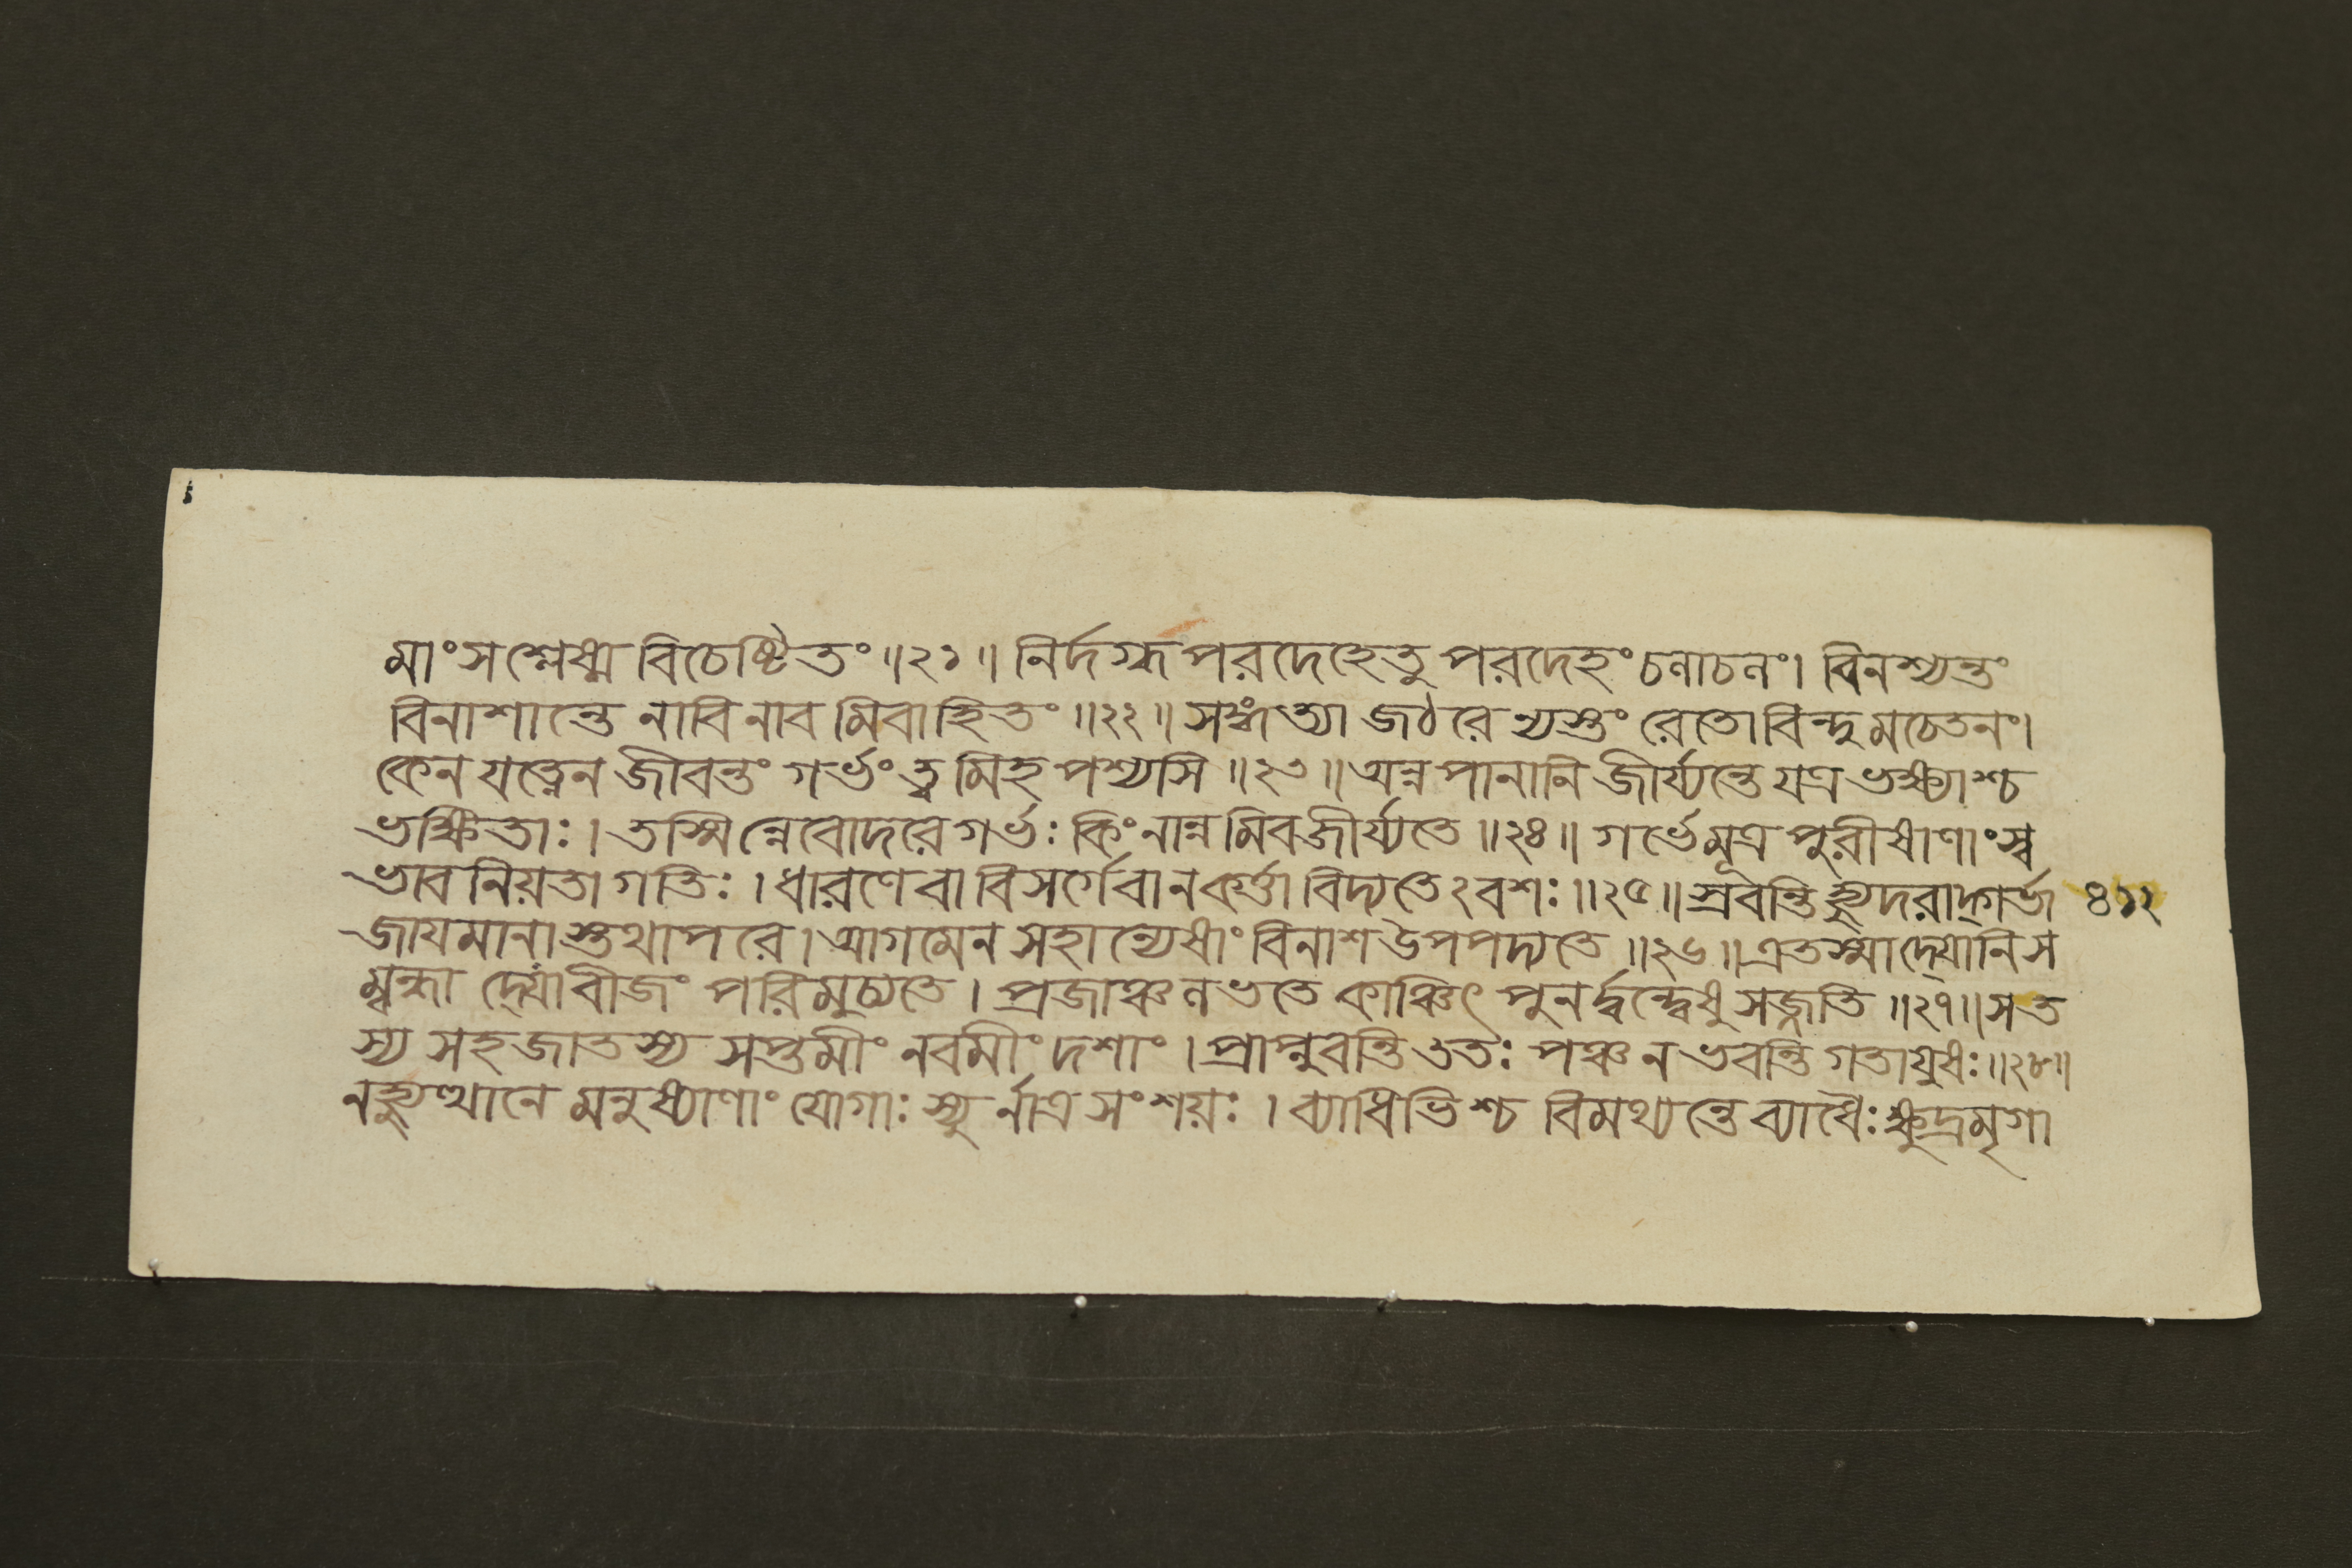 মাংসশ্লেষ্ম বিচেষ্টিতং ॥২১॥ নির্দগ্ধং পরদেহেতু পরদেহং চলাচলং। বিনশ্যন্তং
বিনাশান্তে নাবি নাব মিবাহিতং ॥২২॥ সঙ্গত্যা জঠরে ন্যস্তং রেতোবিন্দু মচেতনং।
কেন যত্নেন জীবন্তং গর্ভং ত্ব মিহ পশ্যসি ॥২৩॥ অন্ন পানানি জীর্য্যন্তে যত্র ভক্ষ্যাশ্চ
ভক্ষিতাঃ। তস্মিন্নেবোদরে গর্ভঃ কিং নান্ন মিব জীর্য্যতে ॥২৪॥ গর্ভে মূত্র পুরীষাণাং স্ব
ভাব নিয়তা গতিঃ। ধারণে বা বিসর্গে বা ন কর্ত্তা বিদ্যতে২বশঃ ॥২৫॥ স্রবন্তি হ্যুদরাদ্গর্ভা ৪১২
জায়মানা স্তথাপরে। আগমেন সহান্যেষাং বিনাশ উপপদ্যতে ॥২৬॥ এতস্মাদ্যোনিস
ম্বন্ধা দ্যোবীজং পরিমুচ্যতে। প্রজাঞ্চ লভতে কাঞ্চিৎ পুনর্দ্বন্দ্বেষু সজ্জতি ॥২৭॥ স ত
স্য সহজাতস্য সপ্তমীং নবমীং দশাং। প্রাপ্নুবন্তি ততঃ পঞ্চ ন ভবন্তি গতায়ুষঃ ॥২৮॥
নহ্যুত্থানে মনুষ্যাণাং যোগাঃ স্যু র্নাত্র সংশয়ঃ। ব্যাধিভিশ্চ বিমথ্যন্তে ব্যাধৈঃ ক্ষুদ্রমৃগা